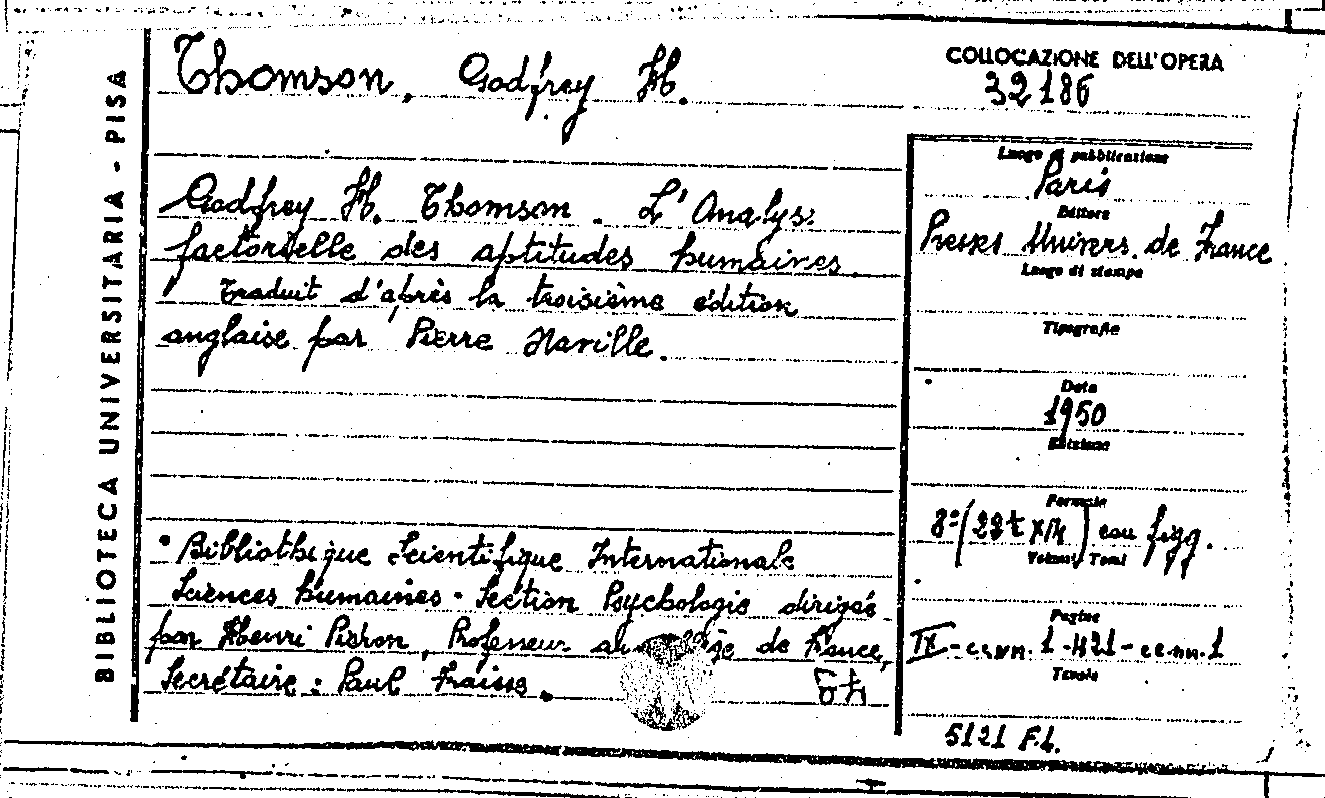 BIBLIOTECA UNIVERSITARIA - PISA
Thomson, Godfrey H.
Godfrey H. Thomson. L'Analys:
factorielle des aptitudes humaines.
Traduit d'après la troisième édition
anglaise par Pierre Naville.
• Bibliothèque Scientifique Internationale
Sciences humaines - Section Psychologie dirigée
par Henri Piéron, Professeur au de France,
Secrétaire: Paul Fraisse.
COLLOCAZIONE DELL'OPERA
32186
Luogo di pubblicazione
Paris
Editore
Presses Univers. de France
Luogo di stampa
Tipografia
Data
1950
Edizione
Formato
8º con figg.
Volumi/Tomi
Pagine
IX-cc.nn.1-421-cc.nn.1
Tavole
5121 F.L.